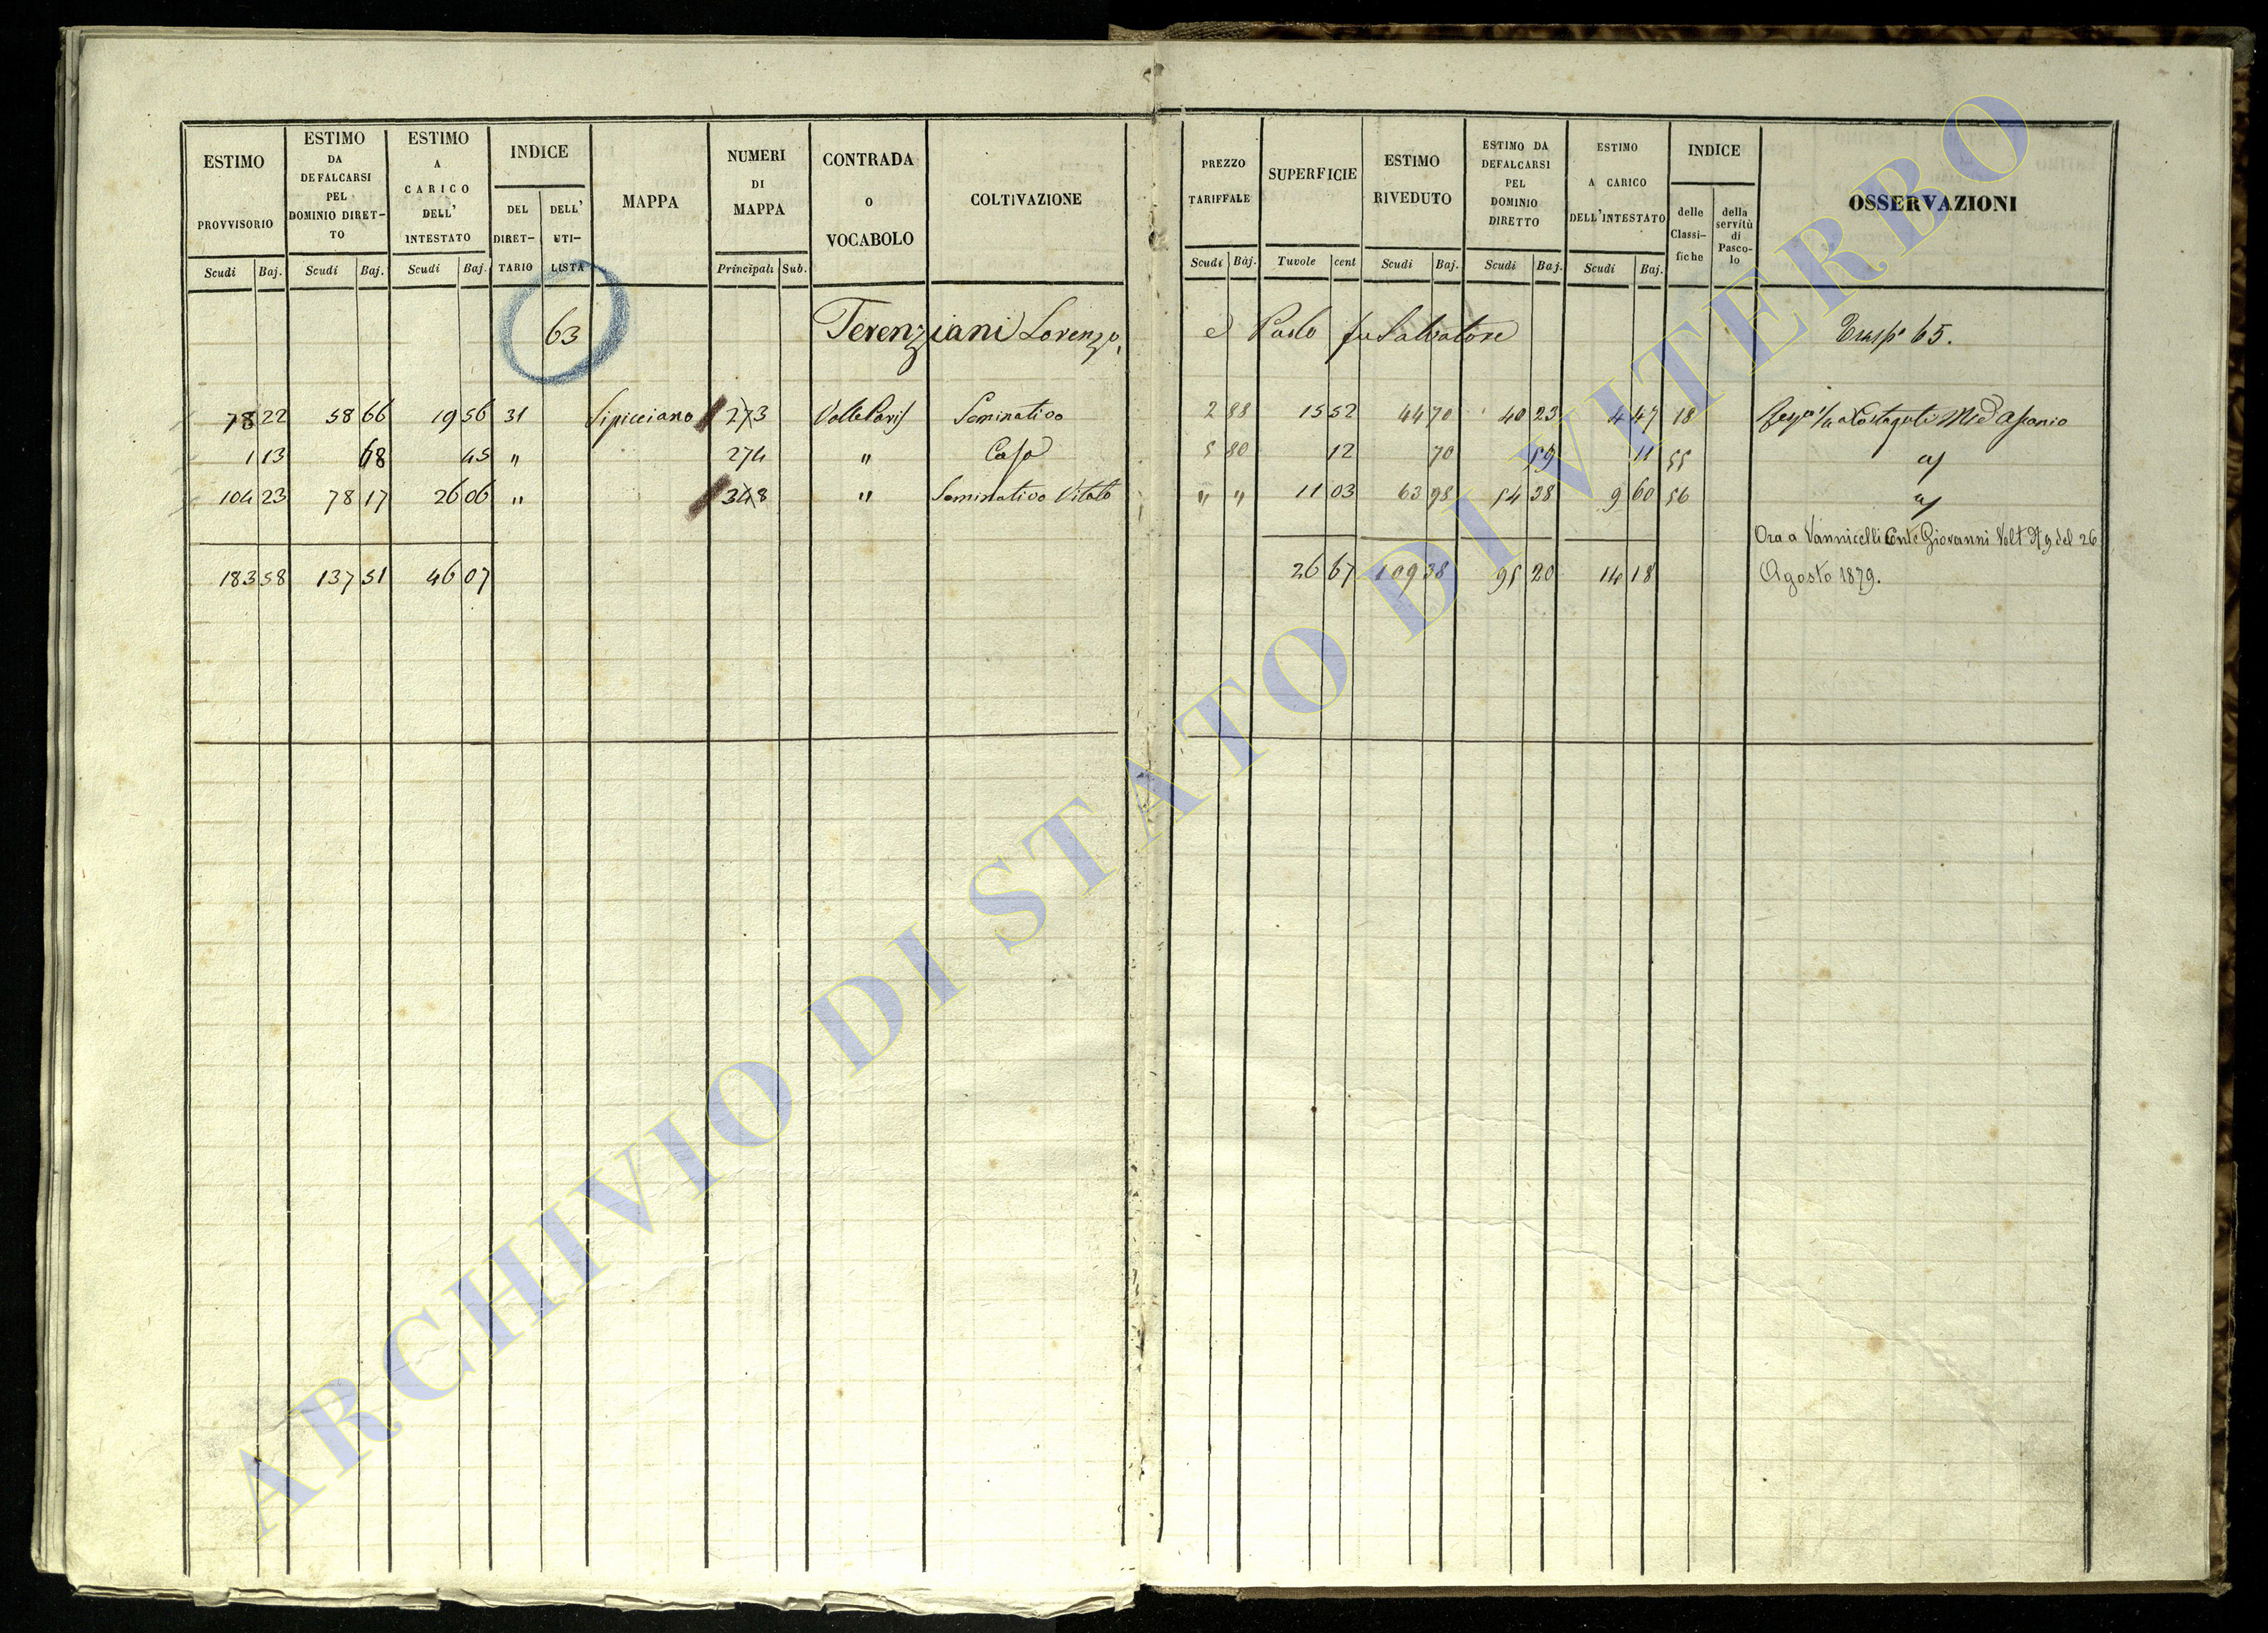 ESTIMO PROVVISORIO Scudi Baj.
ESTIMO DA DEFALCARSI PEL DOMINIO DIRET-TO Scudi Baj.
ESTIMO A CARICO DELL' INTESTATO Scudi Baj.
INDICE DEL DIRET-TARIO DELL' UTI-LISTA
MAPPA
NUMERI DI MAPPA Principali Sub.
CONTRADA O VOCABOLO
COLTIVAZIONE
PREZZO TARIFFALE Scudi Baj.
SUPERFICIE Tuvole cent
ESTIMO RIVEDUTO Scudi Baj.
ESTIMO DA DEFALCARSI PEL DOMINIO DIRETTO Scudi Baj.
ESTIMO A CARICO DELL'INTESTATO Scudi Baj.
INDICE delle Classi-fiche della servitù di Pasco-lo
OSSERVAZIONI
63 Terenziani Lorenzo, e Paolo fu Salvatore 65.
78 22 58 66 19 56 31 Sipicciano 273 Seminativo 2 88 15 52 44 70 40 23 4 47 18
1 13 68 45 " 274 " Casa 5 80 12 70 59 11 55
104 23 78 17 26 06 " 348 " Seminativo Vitato " " 11 03 63 98 54 38 9 60 56
Ora a Vannicelli Conte Giovanni Volt N 9 del 26
183 58 137 51 46 07 26 67 109 38 95 20 14 18 Agosto 1879.
ARCHIVIO DI STATO DI VITERBO